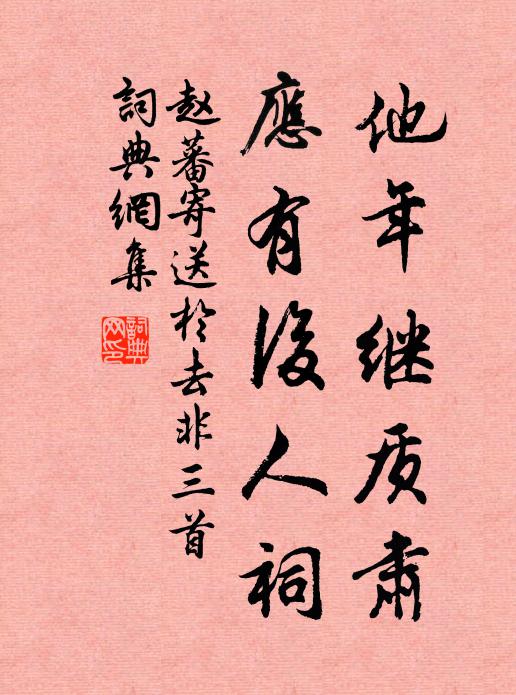 他年继质肃
應有後人祠
赵蕃寄送於去非三首
詞典網集
詞典網印